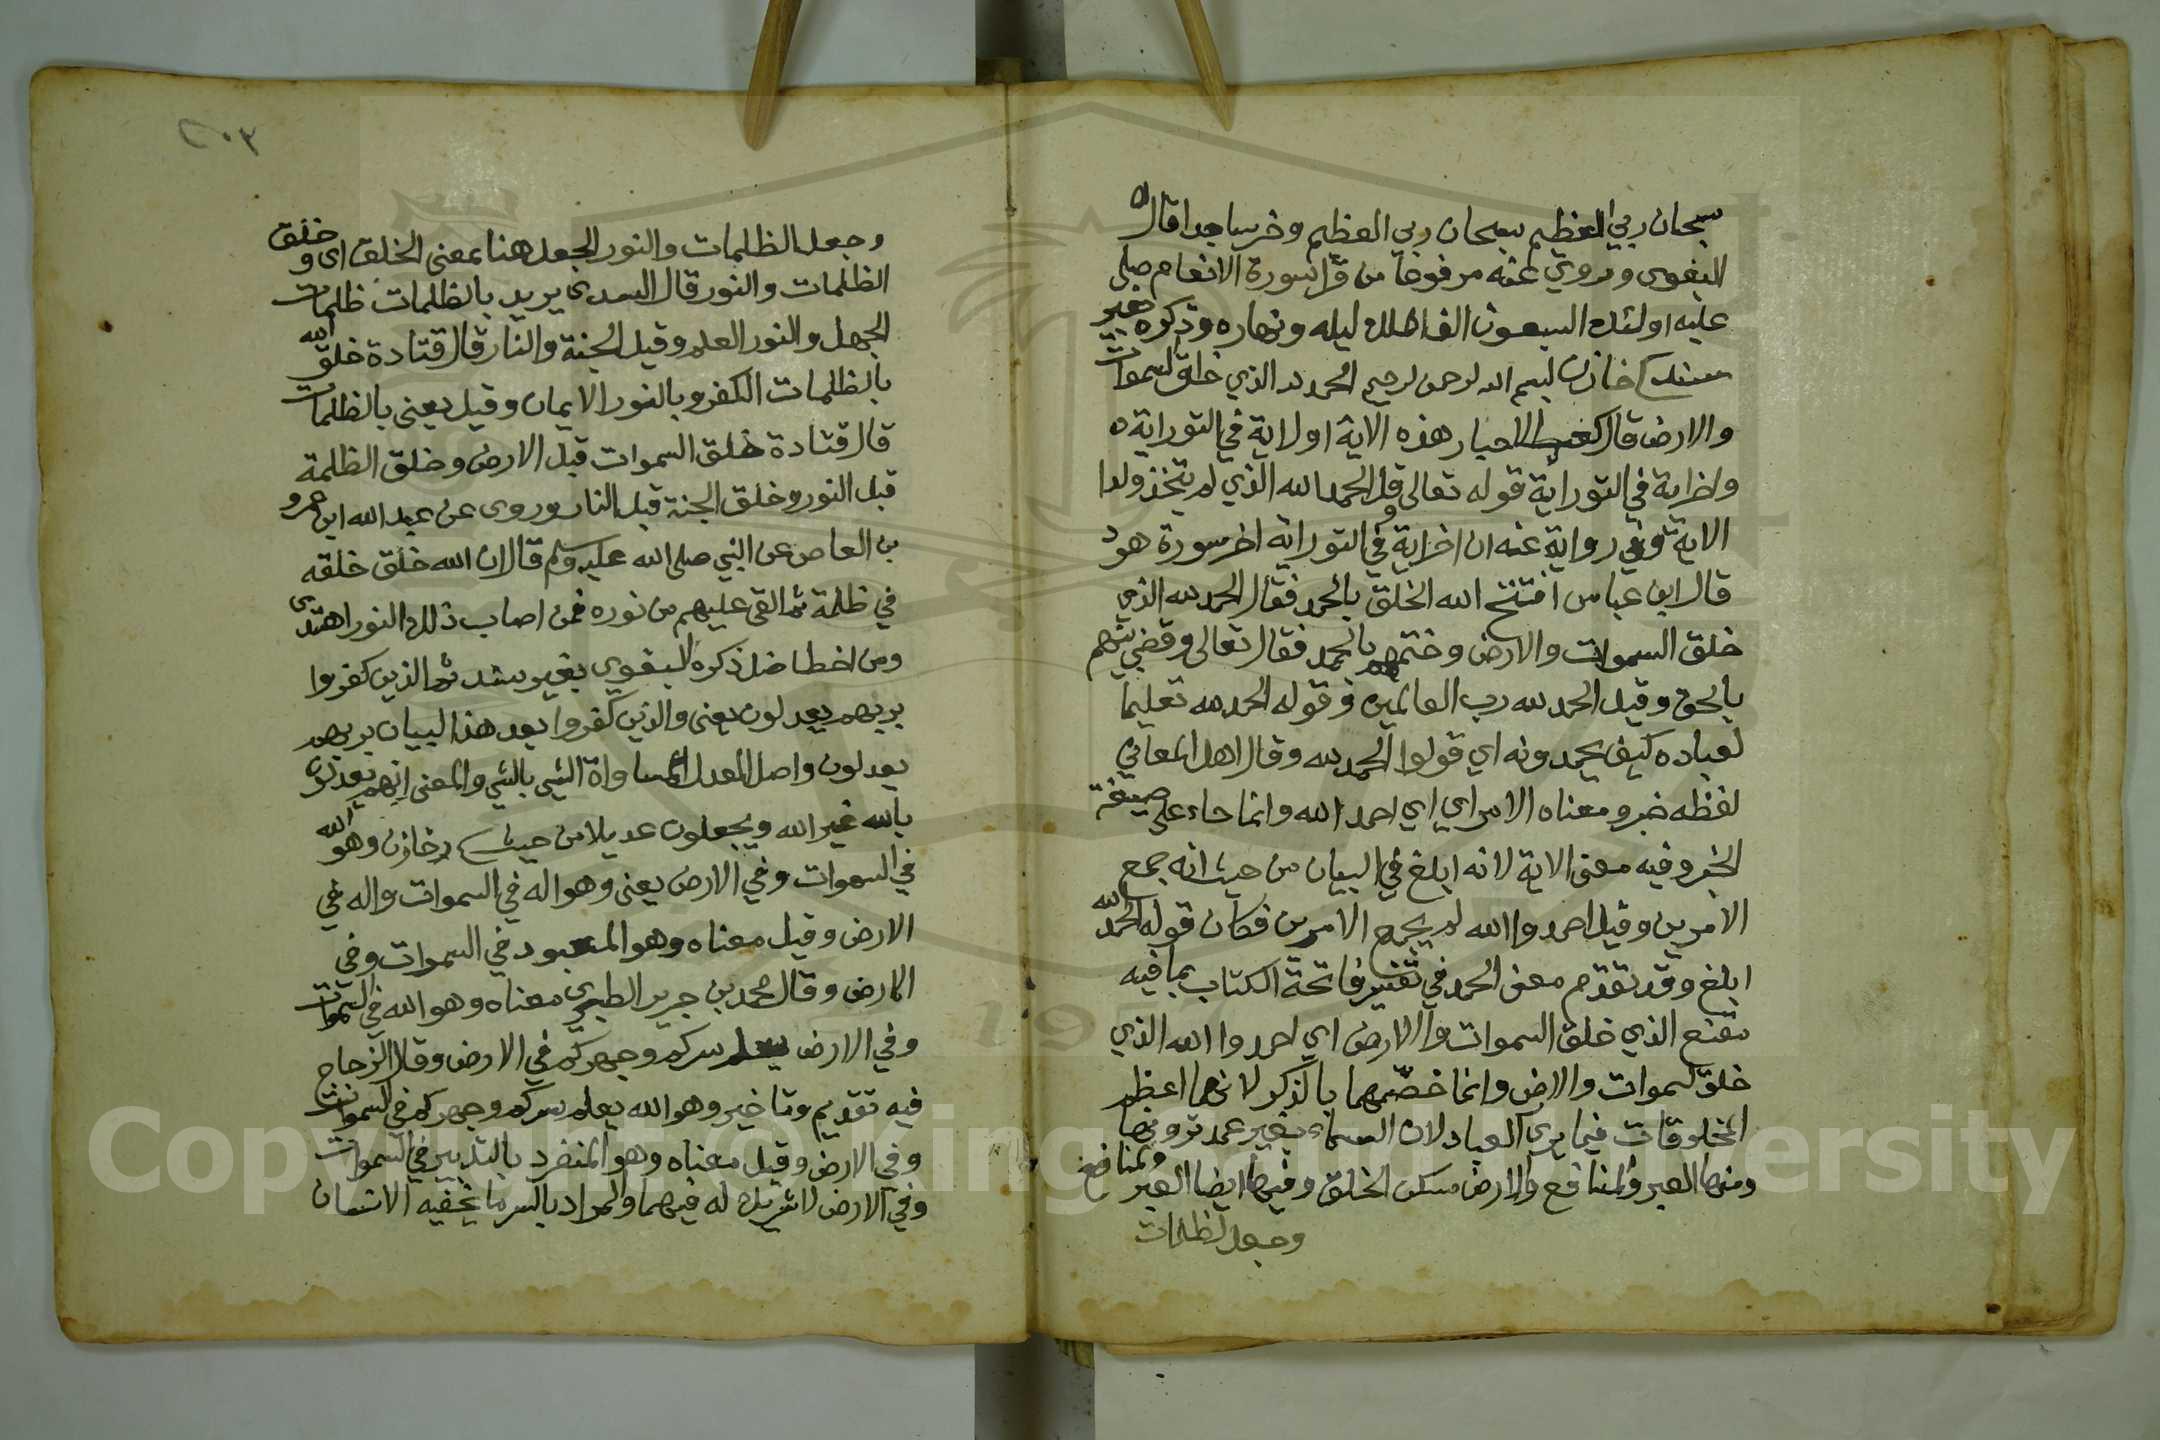 سبحان ربي العظيم سبحان ربي العظيم وخر ساجدا قال
البغوى وروي عنه مرفوعا من قرا سورة الانعام صلى
عليه اولئك السبعون الف ملك ليله ونهاره وذكره بغير
سند خازن بسم الله الرحمن الرحيم الحمد لله الذي خلق السموات
والارض قال كعب الاحبار هذه الاية اول اية في التوراية
واخر اية في التوراية قوله تعالى وقل الحمد لله الذي لم يتخذ ولدا
الاية وفي رواية عنه ان اخر اية في التوراية اخر سورة هود
قال ابن عباس افتتح الله الخلق بالحمد فقال الحمد لله الذي
خلق السموات والارض وختمهم بالحمد فقال تعالى وقضي بينهم
بالحق وقيل الحمد لله رب العالمين وقوله الحمد لله تعليما
لعباده كيف يحمدونه اي قولوا الحمد لله وقال اهل المعاني
لفظه خبر ومعناه الامر اي احمد الله وانما جاء على صيغة
الخبر وفيه معنى الاية لانه ابلغ في البيان من حيث انه جمع
الامرين وقيل احمدوا الله لم يجمع الامرين فكان قوله الحمد لله
ابلغ وقد تقدم معنى الحمد في تفسير فاتحة الكتاب بما فيه
مقنع الذي خلق السموات والارض اي احمدوا الله الذي
خلق السموات والارض وانما خصهما بالذكر لانهما اعظم
المخلوقات فيما يرى العباد لان السماء بغير عمد ترونها
ومنها العبر والمنافع والارض مسكن الخلق وفيها ايضا العبر والمنافع
وجعل الظلمات
٢٠٣
وجعل الظلمات والنور الجعل هنا بمعنى الخلق اى وخلق
الظلمات والنور قال السدى يريد بالظلمات ظلمات
الجهل والنور العلم وقيل الجنة والنار قال قتادة خلق الله
بالظلمات الكفر وبالنور الايمان وقيل يعنى بالظلمات
قال قتادة خلق السموات قبل الارض وخلق الظلمة
قبل النور وخلق الجنة قبل النار وروى عن عبد الله ابن عمرو
بن العاص عن النبي صلى الله عليه وسلم قال ان الله خلق خلقه
في ظلمة ثم القى عليهم من نوره فمن اصاب ذلك النور اهتدى
ومن اخطا ضل ذكره البغوي بغير سند ثم الذين كفروا
بربهم يعدلون يعنى والذين كفروا بعد هذا البيان بربهم
يعدلون واصل العدل المساواة الشي بالشي والمعنى انهم يعدلون
بالله غير الله ويجعلون عديلا من حيث خازن وهو الله
في السموات وفي الارض يعنى وهو اله في السموات واله في
الارض وقيل معناه وهو المعبود في السموات وفي
الارض وقال محمد بن جرير الطبري معناه وهو الله في السموات
وفي الارض يعلم سركم وجهركم في الارض وقال الزجاج
فيه تقديم وتاخير وهو الله يعلم سركم وجهركم في السموات
وفي الارض وقيل معناه وهو المنفرد بالتدبير في السموات
وفي الارض لا شريك له فيهما والمراد بالسر ما يخفيه الانسان
Copyright © King Saud University
1957